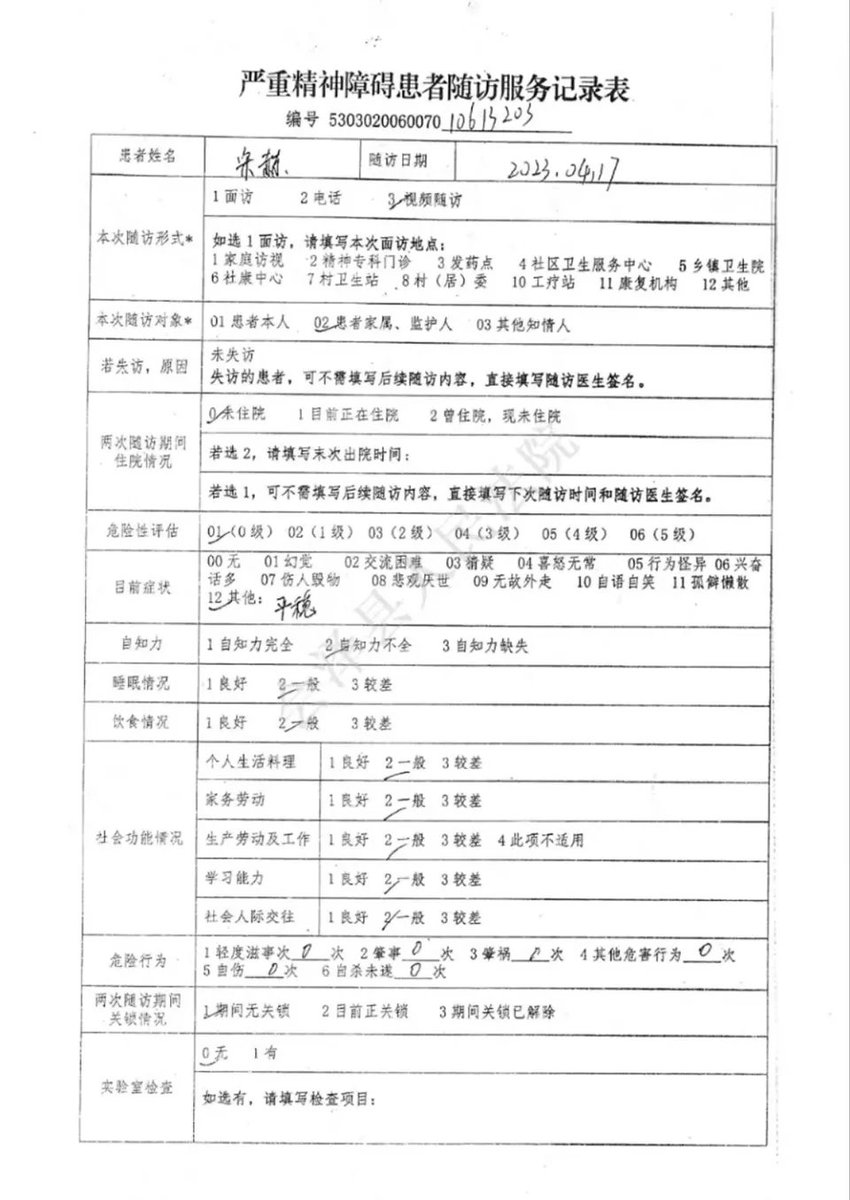 严重精神障碍患者随访服务记录表
编号 5303020060070 10613203
患者姓名 宋赫 随访日期 2023.04.17
本次随访形式* 1面访 2电话 3视频随访
如选1面访，请填写本次面访地点：
1家庭访视 2精神专科门诊 3发药点 4社区卫生服务中心 5乡镇卫生院
6社康中心 7村卫生站 8村（居）委 10工疗站 11康复机构 12其他
本次随访对象* 01患者本人 02患者家属、监护人 03其他知情人
若失访，原因 未失访
失访的患者，可不需填写后续随访内容，直接填写随访医生签名。
两次随访期间住院情况 0未住院 1目前正在住院 2曾住院，现未住院
若选2，请填写末次出院时间：
若选1，可不需填写后续随访内容，直接填写下次随访时间和随访医生签名。
危险性评估 01（0级） 02（1级） 03（2级） 04（3级） 05（4级） 06（5级）
目前症状 00无 01幻觉 02交流困难 03猜疑 04喜怒无常 05行为怪异 06兴奋
话多 07伤人毁物 08悲观厌世 09无故外走 10自语自笑 11孤僻懒散
12其他：平稳
自知力 1自知力完全 2自知力不全 3自知力缺失
睡眠情况 1良好 2一般 3较差
饮食情况 1良好 2一般 3较差
社会功能情况 个人生活料理 1良好 2一般 3较差
家务劳动 1良好 2一般 3较差
生产劳动及工作 1良好 2一般 3较差 4此项不适用
学习能力 1良好 2一般 3较差
社会人际交往 1良好 2一般 3较差
危险行为 1轻度滋事次0次 2肇事0次 3肇祸0次 4其他危害行为0次
5自伤0次 6自杀未遂0次
两次随访期间关锁情况 1期间无关锁 2目前正关锁 3期间关锁已解除
实验室检查 0无 1有
如选有，请填写检查项目：
会泽县人民法院